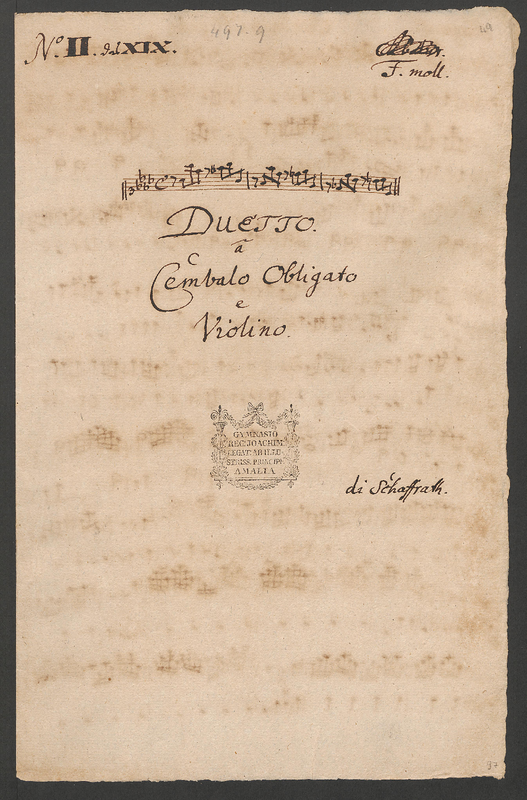 No. II. del XIX.
497.9
49
F. moll.
DUETTO.
a
Cembalo Obligato
e
Violino.
GYMNASIO
REG. JOACHIM.
LEGAT. AB ILLU-
STRISS. PRINCIPE
AMALIA
di Schaffrath.
97